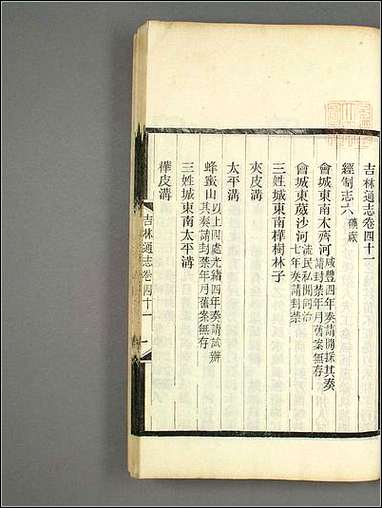 吉林通志卷四十一
經制志六 礦廠
會城東南木齊河 咸豐四年奏請開採其奏請封禁年月舊案無存
會城東葳沙河 流民私開同治七年奏請封禁
三姓城東南樺樹林子
夾皮溝
太平溝
蜂蜜山 以上四處光緒四年奏請試辦其奏請封禁年月舊案無存
三姓城東南太平溝
樺皮溝
吉林通志卷四十一 一